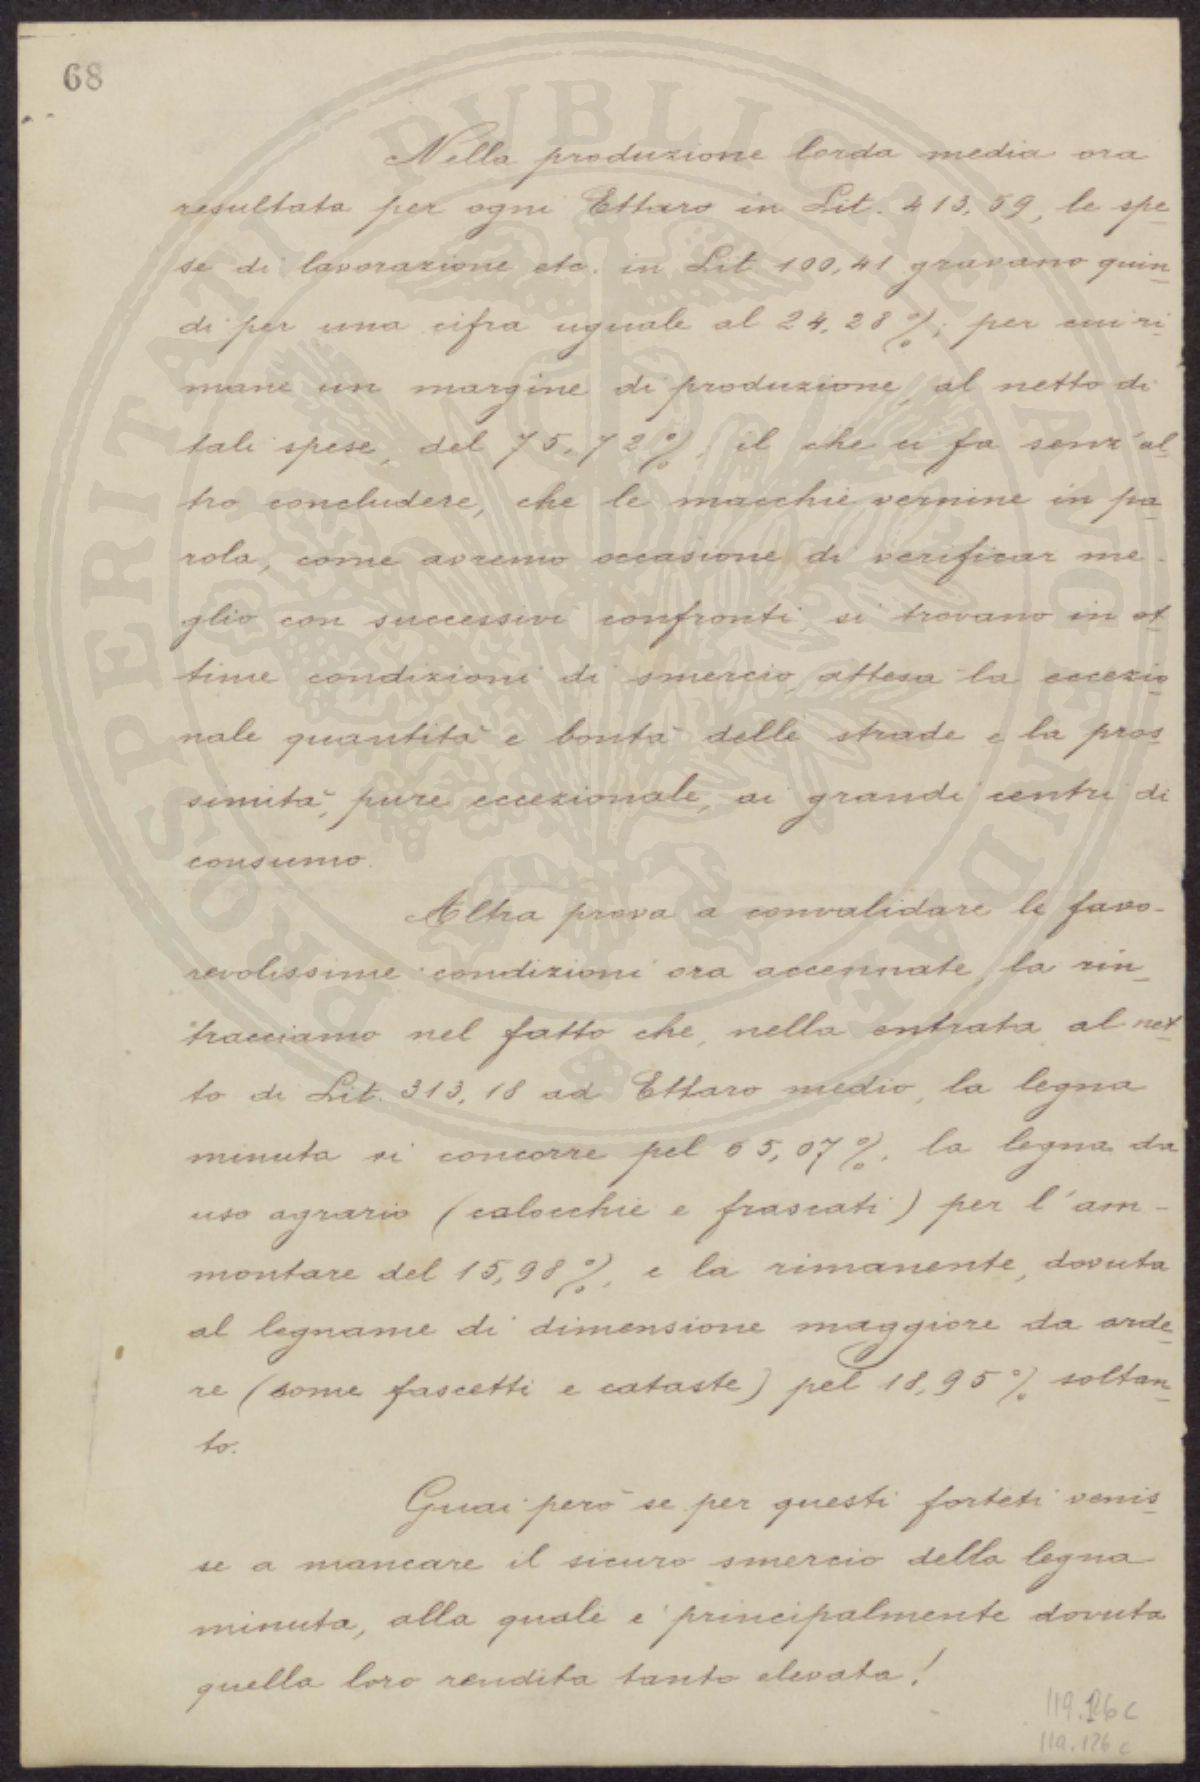 68
Nella produzione lorda media ora
resultata per ogni Ettaro in Lit. 413,59, le spe-
se di lavorazione etc. in Lit 100,41 gravano quin-
di per una cifra uguale al 24,28%; per cui ri-
mane un margine di produzione, al netto di
tali spese, del 75,72%; il che ci fa senz'al-
tro concludere, che le macchie vernine in pa-
rola, come avremo occasione di verificar me-
glio con successivi confronti, si trovano in ot-
time condizioni di smercio, attesa la eccezio-
nale quantità e bontà delle strade e la pros-
simità, pure eccezionale, ai grandi centri di
consumo.
Altra prova a convalidare le favo-
revolissime condizioni ora accennate, la rin-
tracciamo nel fatto che, nella entrata al net-
to di Lit. 313,18 ad Ettaro medio, la legna
minuta vi concorre pel 65,07%, la legna da
uso agrario (calocchie e frascati) per l'am-
montare del 15,98%, e la rimanente, dovuta
al legname di dimensione maggiore da arde-
re (some fascetti e cataste) pel 18,95% soltan-
to.
Guai però se per questi forteti venis-
se a mancare il sicuro smercio della legna
minuta, alla quale è principalmente dovuta
quella loro rendita tanto elevata!
119.126 c
119.126 c
PROSPERITATI PUBLICAE AUGENDAE